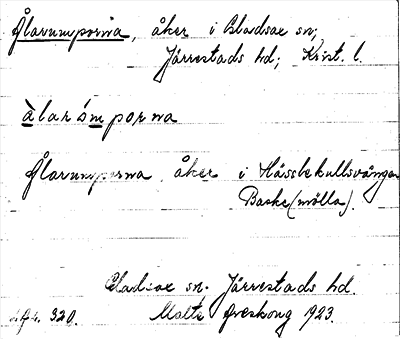 Ålarumporna, åker i Gladsax sn;
Järrestads hd; Krist. l.
àlarúmporna
Ålarumporna, åker i Hässlekullsvången
Baske (mölla).
Gladsax sn. Järrestads hd.
320. Malte Areskoug 1923.